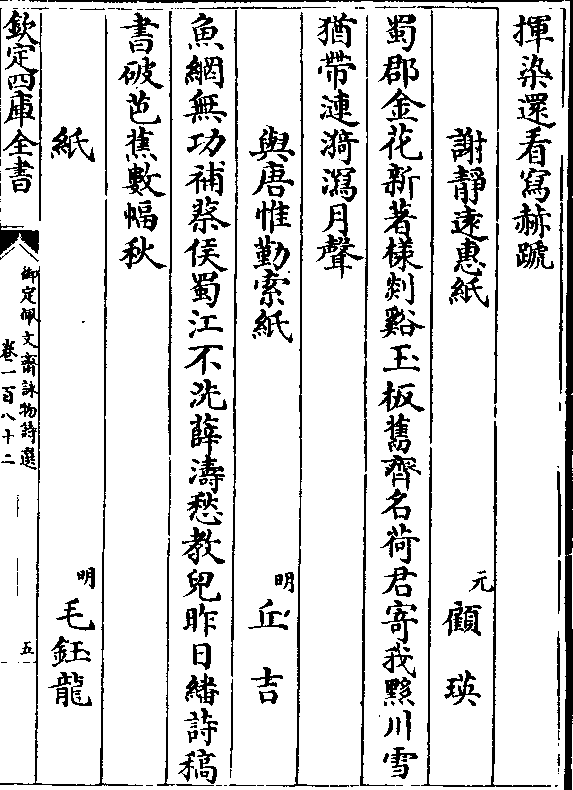 揮染還看寫赫蹏
謝靜遠惠紙 元 顧瑛
蜀郡金花新著様剡谿玉板舊齊名荷君寄我黟川雪
猶帶漣漪瀉月聲
與唐惟勤索紙 明 丘吉
魚網無功補蔡侯蜀江不洗薛濤愁教兒昨日繙詩稿
書破芭蕉數幅秋
紙 明 毛鈺龍
欽定四庫全書
御定佩文齋詠物詩選
卷一百八十二
五